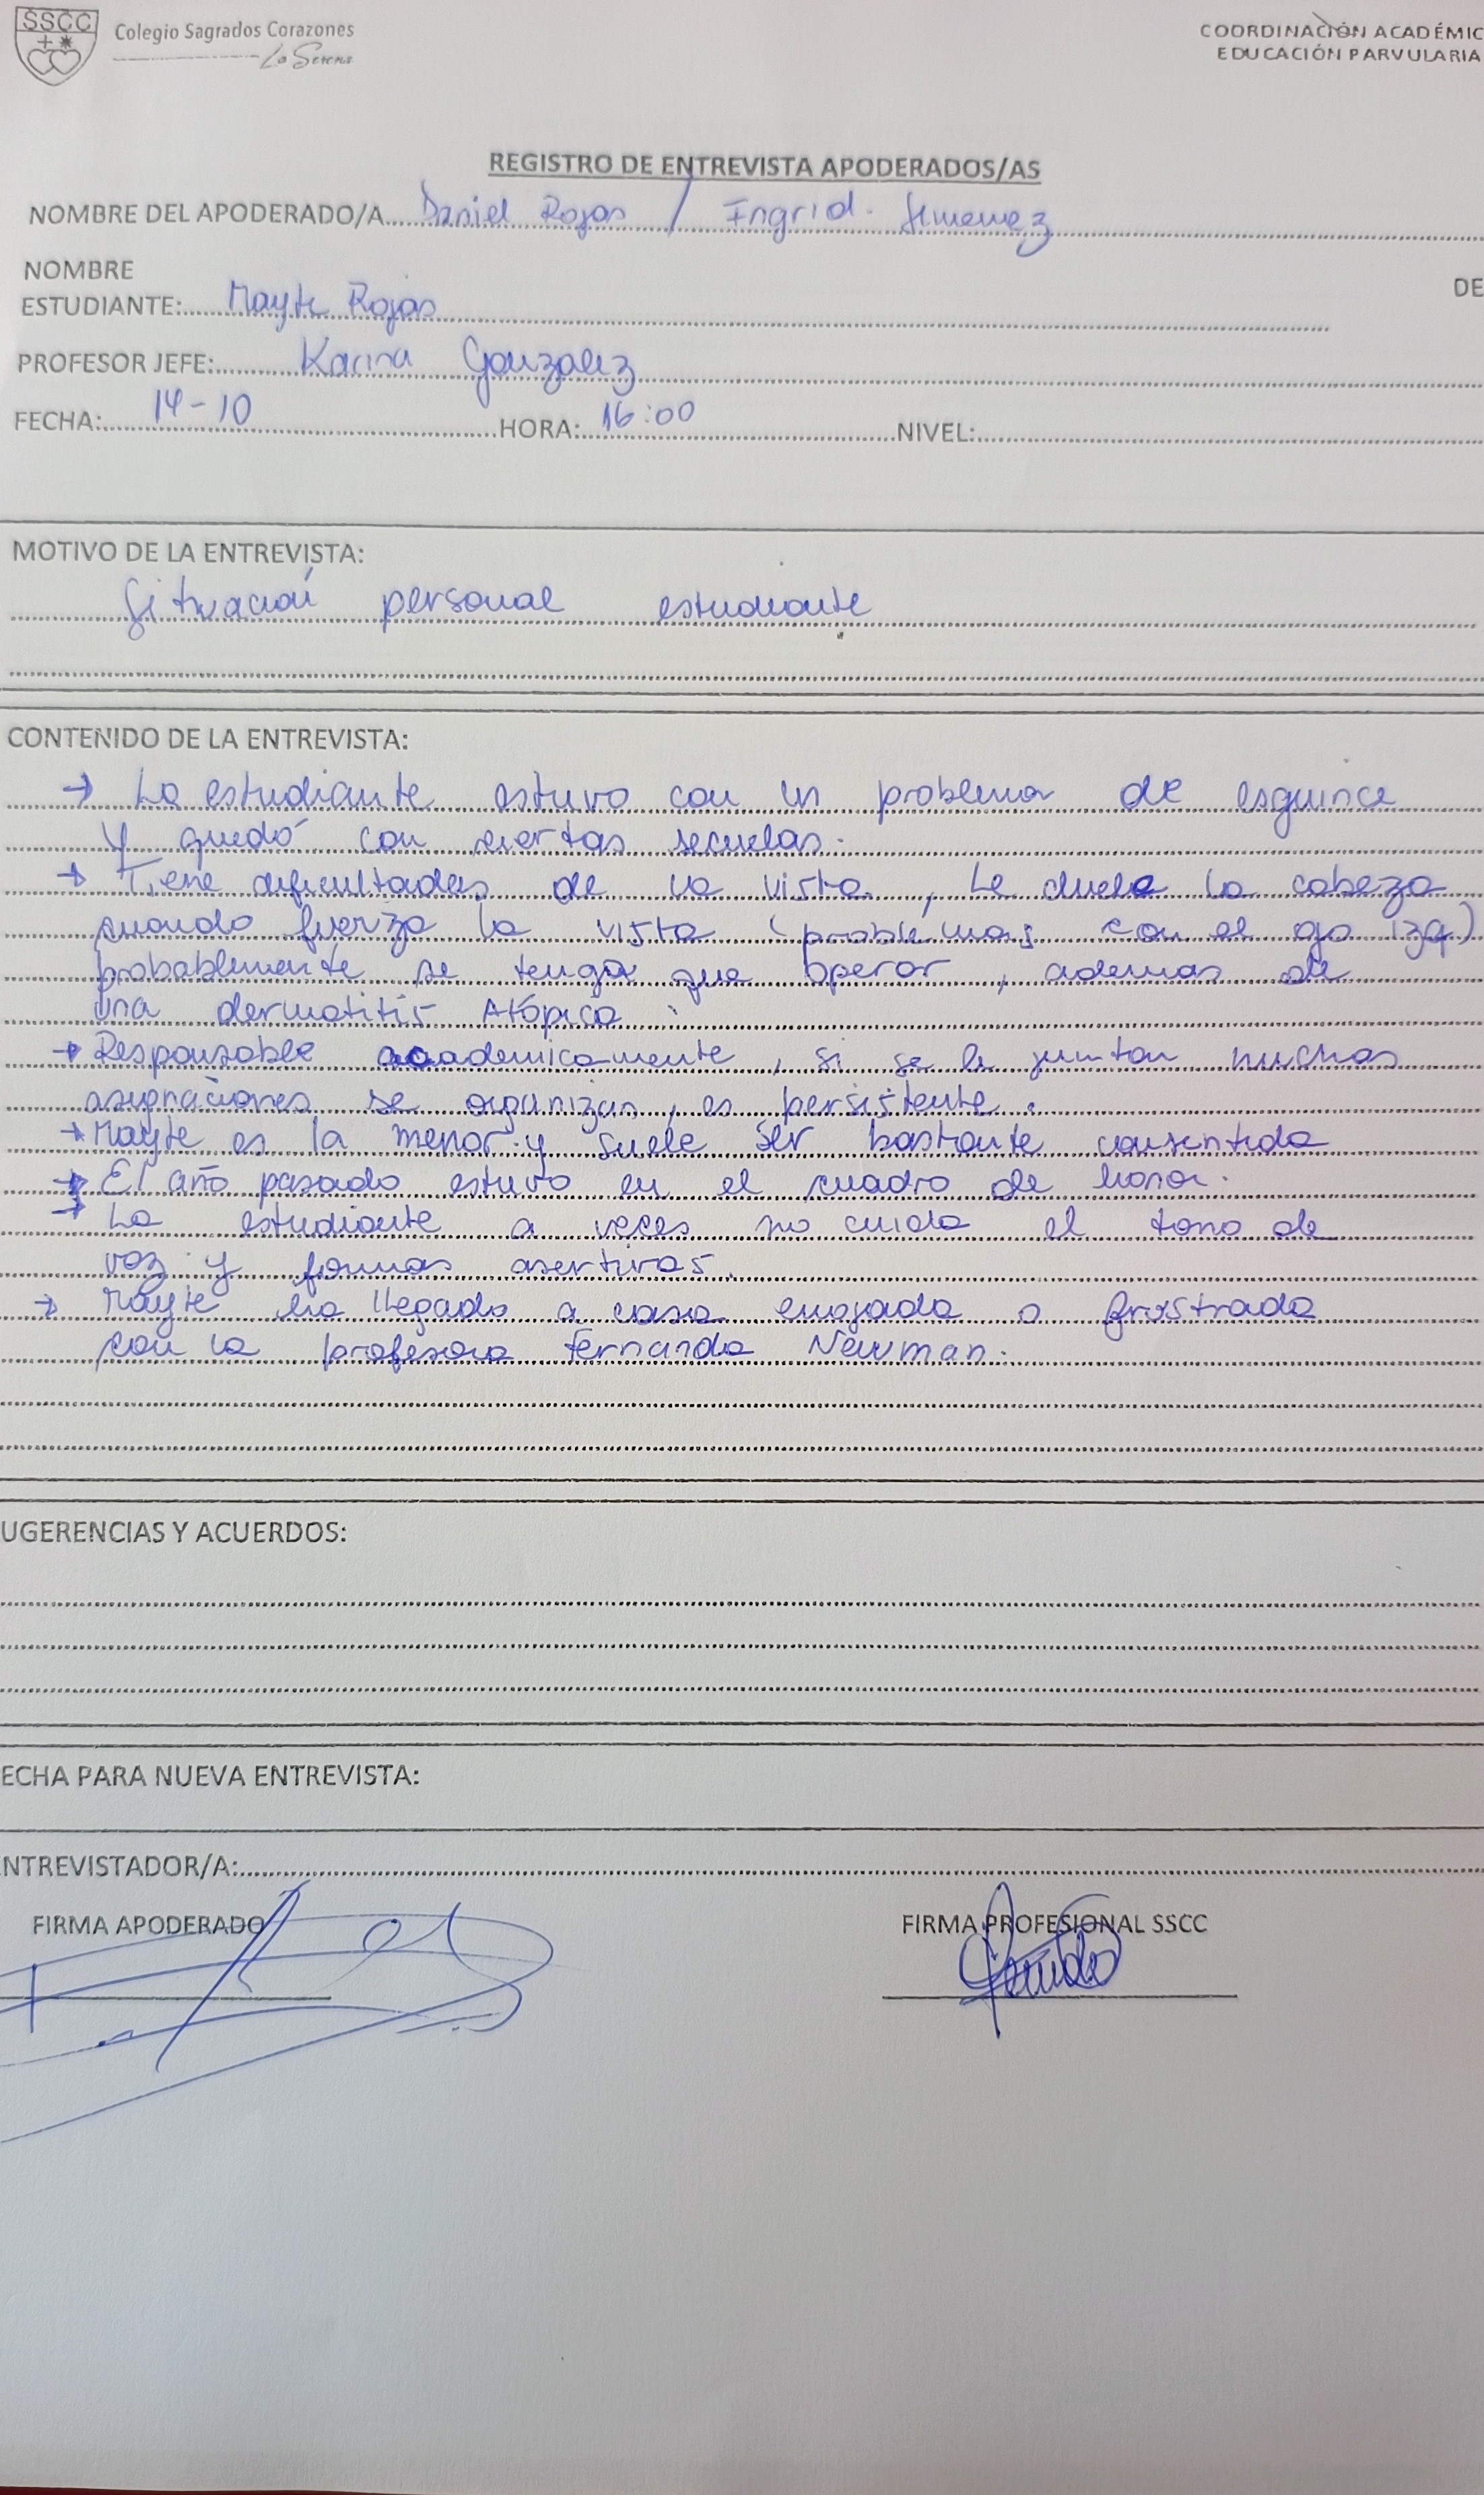 SSCC
Colegio Sagrados Corazones
La Serena
COORDINACIÓN ACADÉMIC
EDUCACIÓN PARVULARIA
REGISTRO DE ENTREVISTA APODERADOS/AS
NOMBRE DEL APODERADO/A Daniel Rojas / Ingrid. Jimenez
NOMBRE DE
ESTUDIANTE: Mayte Rojas
PROFESOR JEFE: Karina Gonzalez
FECHA: 14-10 HORA: 16:00 NIVEL:
MOTIVO DE LA ENTREVISTA:
Situación personal estudiante
CONTENIDO DE LA ENTREVISTA:
→ La estudiante estuvo con un problema de esguince
y quedó con ciertas secuelas.
→ Tiene dificultades de la vista, Le duele la cabeza
cuando fuerza la vista (problemas con el ojo izq)
probablemente se tenga que operar, ademas de
una dermatitis Atópica
→ Responsable academicamente, si se le juntan muchas
asignaciones se organiza, es persistente.
→ Mayte es la menor y suele ser bastante consentida
→ El año pasado estuvo en el cuadro de honor.
→ La estudiante a veces no cuida el tono de
voz y formas asertivas.
→ Mayte ha llegado a casa enojada o frustrada
con la profesora Fernanda Newman.
UGERENCIAS Y ACUERDOS:
ECHA PARA NUEVA ENTREVISTA:
NTREVISTADOR/A:
FIRMA APODERADO FIRMA PROFESIONAL SSCC